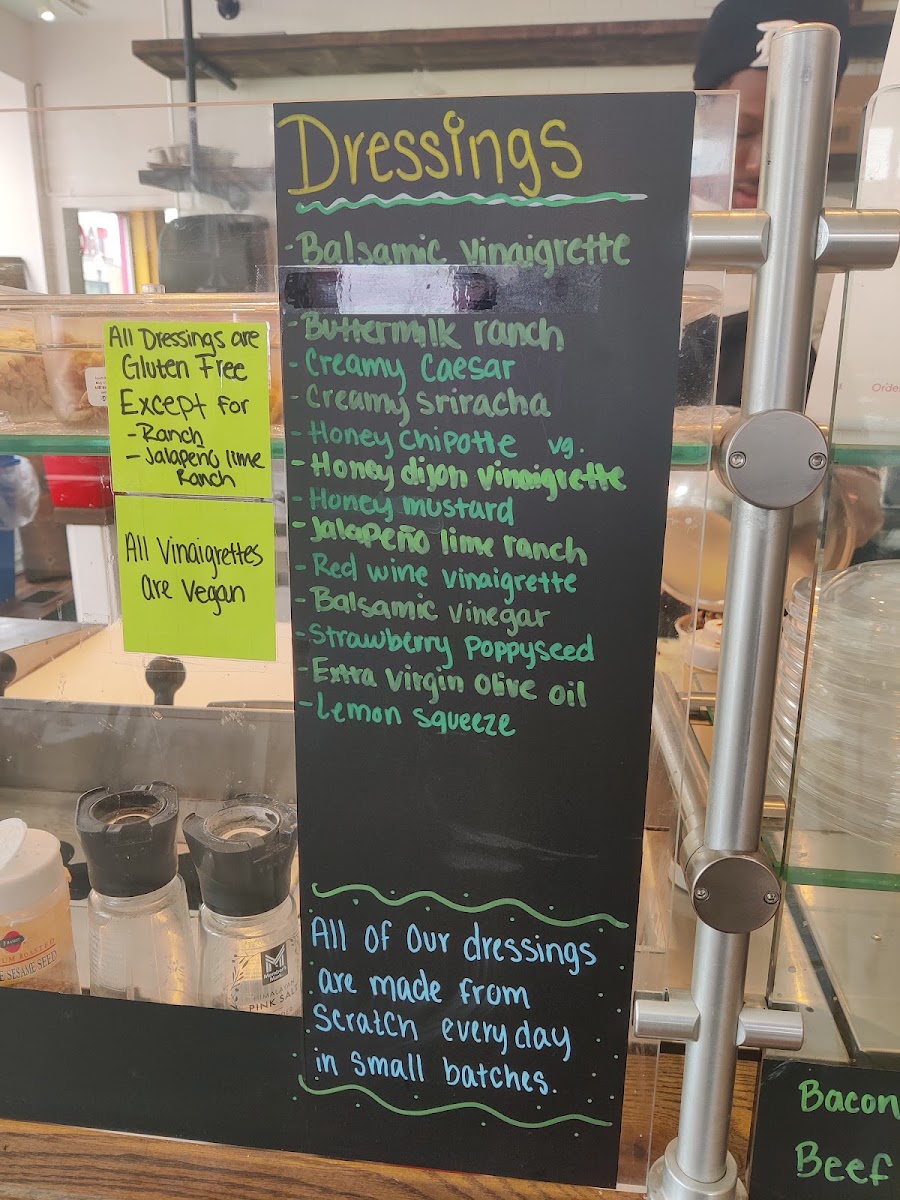 Dressings
- Balsamic vinaigrette
- Buttermilk ranch
- Creamy Caesar
- Creamy sriracha
- Honey Chipotle vg.
- Honey dijon vinaigrette
- Honey mustard
- Jalapeño lime ranch
- Red wine vinaigrette
- Balsamic vinegar
- Strawberry Poppyseed
- Extra virgin olive oil
- Lemon squeeze
All of Our dressings
are made from
Scratch everyday
in small batches.
All Dressings are
Gluten Free
Except for
- Ranch
- Jalapeño lime
Ranch
All Vinaigrettes
are Vegan
SESAME SEED
M
HIMALAYAN
PINK SALT
Order
Bacon
Beef